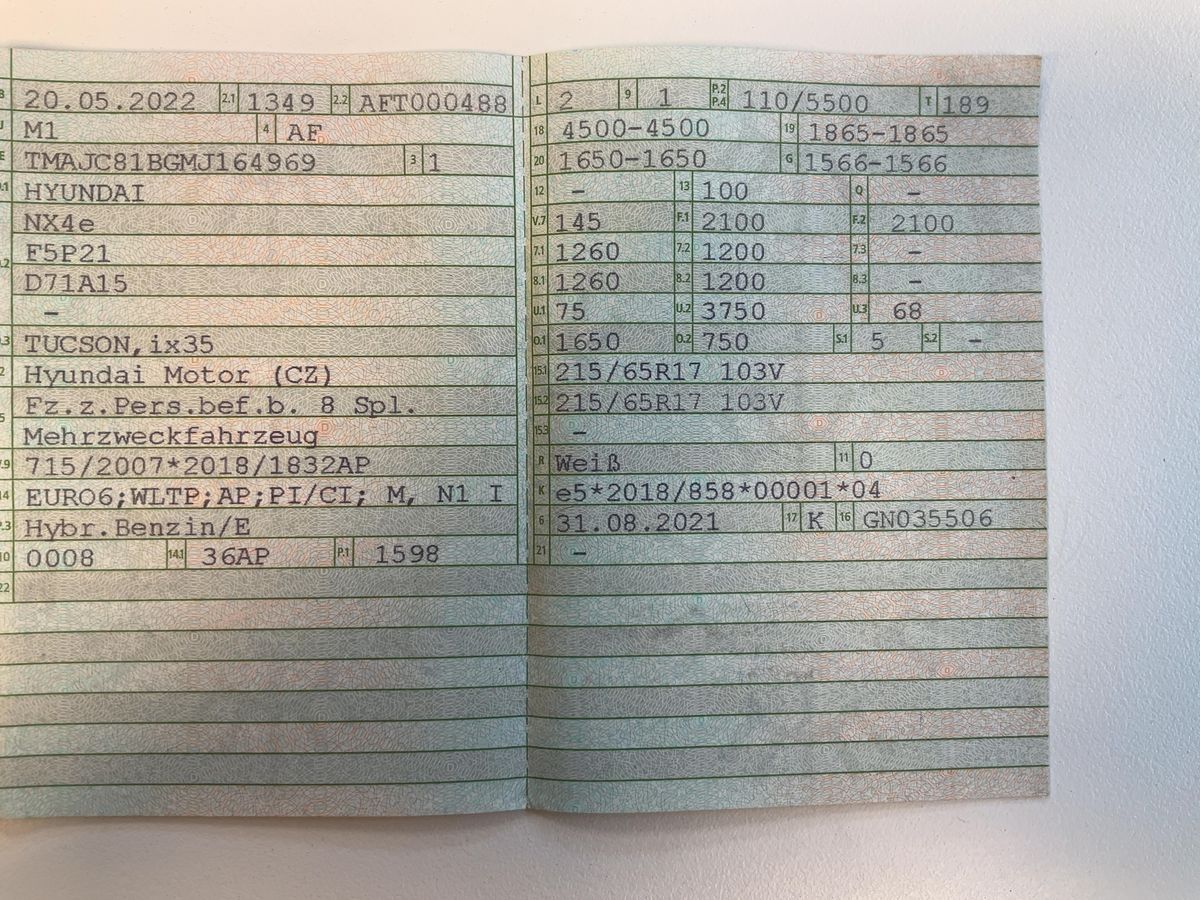 B 20.05.2022 2.1 1349 2.2 AFT000488
J M1 4 AF
E TMAJC81BGMJ164969 3 1
D.1 HYUNDAI
NX4e
D.2 F5P21
D71A15
–
D.3 TUCSON,ix35
2 Hyundai Motor (CZ)
5 Fz.z.Pers.bef.b. 8 Spl.
Mehrzweckfahrzeug
V.9 715/2007*2018/1832AP
14 EURO6;WLTP;AP;PI/CI; M, N1 I
P.3 Hybr.Benzin/E
10 0008 14.1 36AP P.1 1598
22
L 2 9 1 P.2 P.4 110/5500 T 189
18 4500-4500 19 1865-1865
20 1650-1650 G 1566-1566
12 – 13 100 Q –
V.7 145 F.1 2100 F.2 2100
7.1 1260 7.2 1200 7.3 –
8.1 1260 8.2 1200 8.3 –
U.1 75 U.2 3750 U.3 68
O.1 1650 O.2 750 S.1 5 S.2 –
15.1 215/65R17 103V
15.2 215/65R17 103V
15.3 –
R Weiß 11 0
K e5*2018/858*00001*04
6 31.08.2021 17 K 16 GN035506
21 –